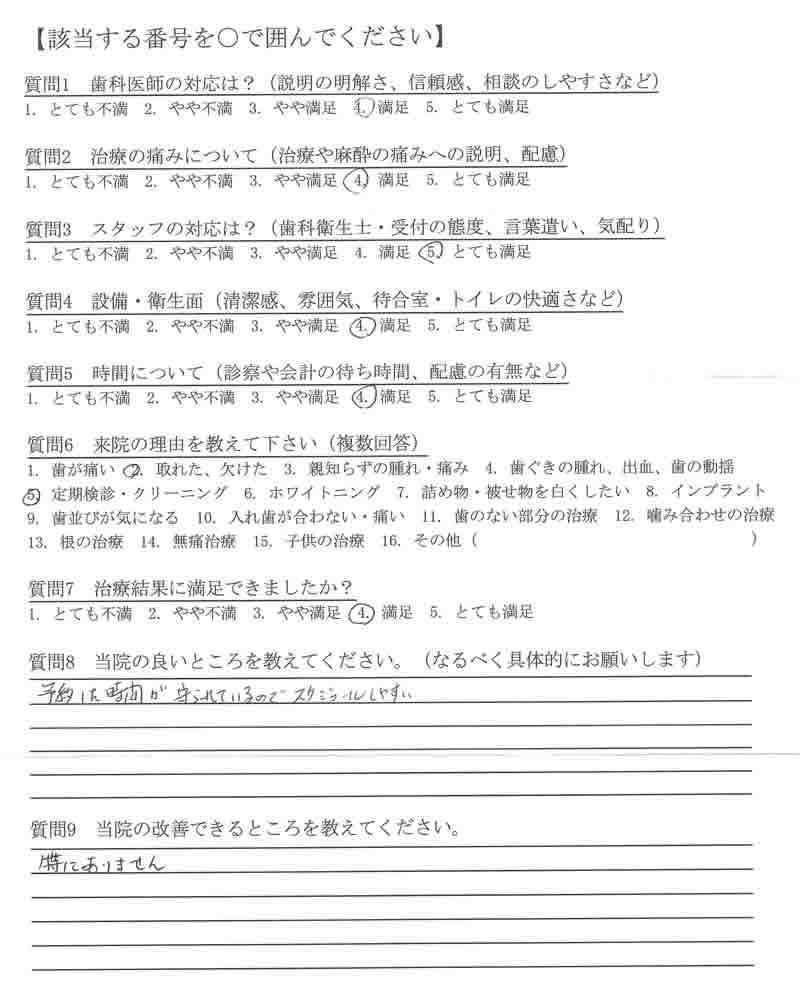 【該当する番号を〇で囲んでください】
質問1 歯科医師の対応は？（説明の明解さ、信頼感、相談のしやすさなど）
1. とても不満 2. やや不満 3. やや満足 4. 満足 5. とても満足
質問2 治療の痛みについて（治療や麻酔の痛みへの説明、配慮）
1. とても不満 2. やや不満 3. やや満足 4. 満足 5. とても満足
質問3 スタッフの対応は？（歯科衛生士・受付の態度、言葉遣い、気配り）
1. とても不満 2. やや不満 3. やや満足 4. 満足 5. とても満足
質問4 設備・衛生面（清潔感、雰囲気、待合室・トイレの快適さなど）
1. とても不満 2. やや不満 3. やや満足 4. 満足 5. とても満足
質問5 時間について（診察や会計の待ち時間、配慮の有無など）
1. とても不満 2. やや不満 3. やや満足 4. 満足 5. とても満足
質問6 来院の理由を教えて下さい（複数回答）
1. 歯が痛い 2. 取れた、欠けた 3. 親知らずの腫れ・痛み 4. 歯ぐきの腫れ、出血、歯の動揺
5. 定期検診・クリーニング 6. ホワイトニング 7. 詰め物・被せ物を白くしたい 8. インプラント
9. 歯並びが気になる 10. 入れ歯が合わない・痛い 11. 歯のない部分の治療 12. 噛み合わせの治療
13. 根の治療 14. 無痛治療 15. 子供の治療 16. その他（ ）
質問7 治療結果に満足できましたか？
1. とても不満 2. やや不満 3. やや満足 4. 満足 5. とても満足
質問8 当院の良いところを教えてください。（なるべく具体的にお願いします）
予約した時間が守られているのでスケジュールしやすい
質問9 当院の改善できるところを教えてください。
特にありません